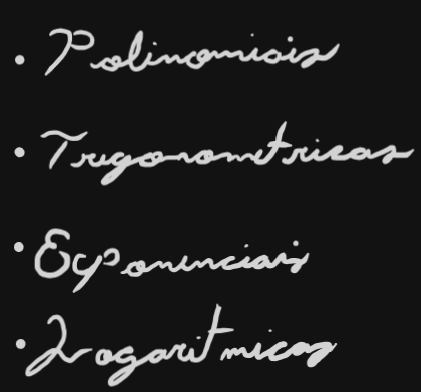 • Polinomiais
• Trigonometricas
• Exponenciais
• Logaritmicas